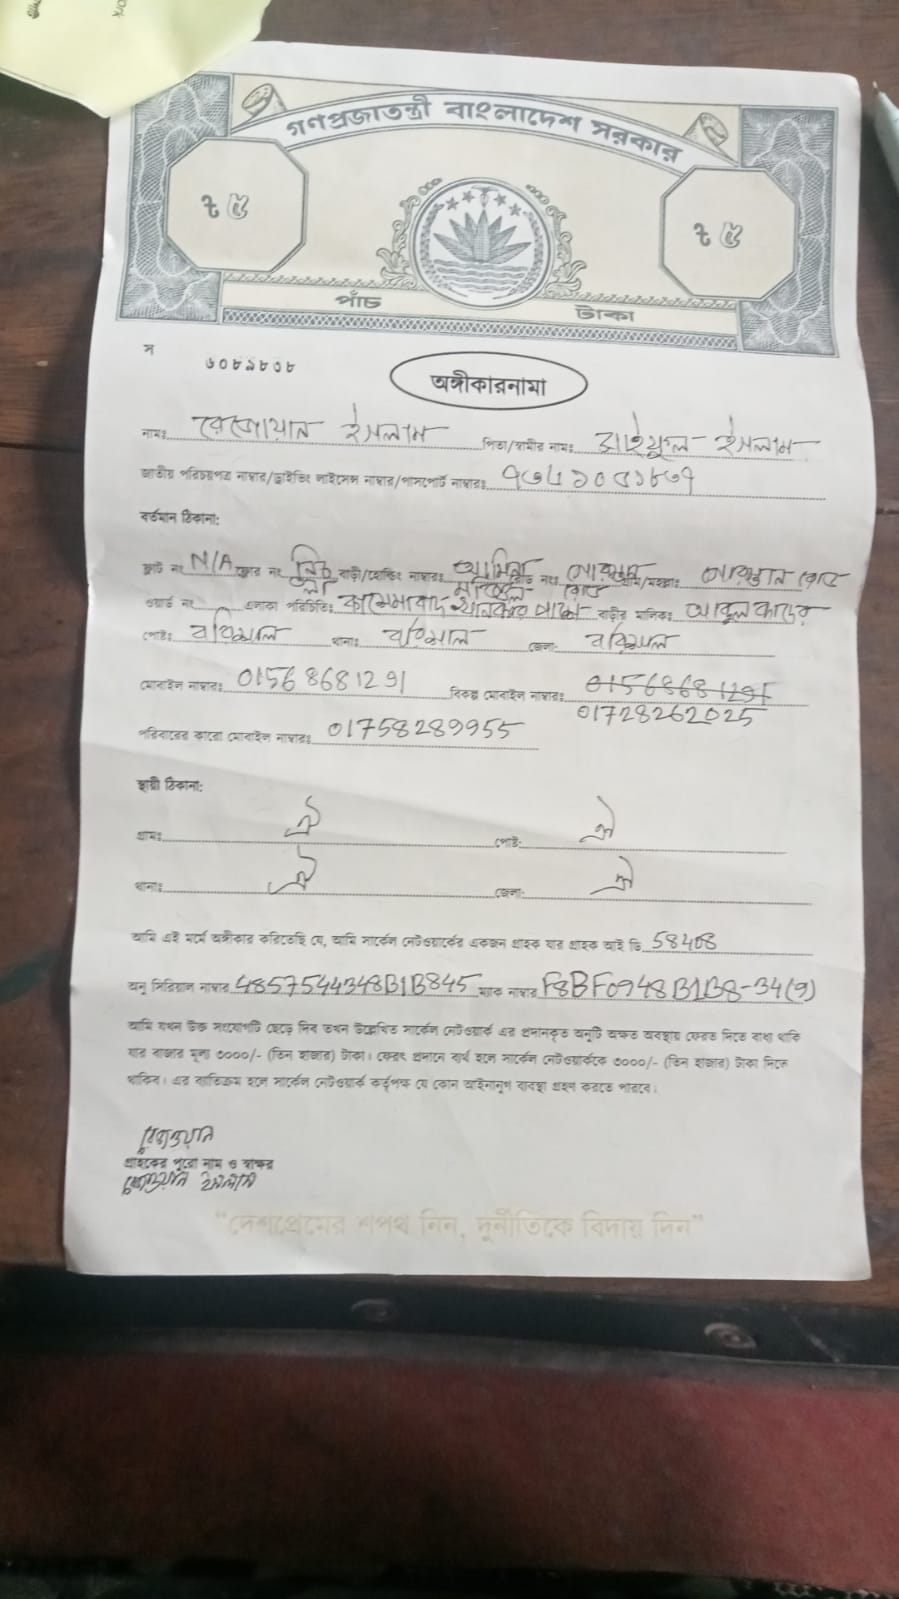 গণপ্রজাতন্ত্রী বাংলাদেশ সরকার
৳ ৫ ৳ ৫
পাঁচ টাকা
স ৬০৮৯৮৩৮
অঙ্গীকারনামা
নামঃ রেজোয়ান ইসলাম পিতা/স্বামীর নামঃ ইসলাম
জাতীয় পরিচয়পত্র নাম্বার/ড্রাইভিং লাইসেন্স নাম্বার/পাসপোর্ট নাম্বারঃ
বর্তমান ঠিকানা:
ফ্লাট নং N/A ফ্লোর নং নিচ তলা বাড়ী/হোল্ডিং নাম্বারঃ আমিনা মঞ্জিল রোড নংঃ গ্রাম/মহল্লাঃ রোড
ওয়ার্ড নং এলাকা পরিচিতিঃ বাড়ীর মালিকঃ আবুল কাদের
পোষ্টঃ বরিশাল থানাঃ বরিশাল জেলা: বরিশাল
মোবাইল নাম্বারঃ 01568681291 বিকল্প মোবাইল নাম্বারঃ 01568681291
01728262025
পরিবারের কারো মোবাইল নাম্বারঃ 01758289955
স্থায়ী ঠিকানা:
গ্রামঃ ঐ পোষ্ট: ঐ
থানাঃ ঐ জেলা: ঐ
আমি এই মর্মে অঙ্গীকার করিতেছি যে, আমি সার্কেল নেটওয়ার্কের একজন গ্রাহক যার গ্রাহক আই ডি 58408
অনু সিরিয়াল নাম্বার 4857544348B1B845 ম্যাক নাম্বার F8BF0948B1B8-34(9)
আমি যখন উক্ত সংযোগটি ছেড়ে দিব তখন উল্লেখিত সার্কেল নেটওয়ার্ক এর প্রদানকৃত অনুটি অক্ষত অবস্থায় ফেরত দিতে বাধ্য থাকি
যার বাজার মূল্য ৩০০০/- (তিন হাজার) টাকা। ফেরৎ প্রদানে ব্যর্থ হলে সার্কেল নেটওয়ার্ককে ৩০০০/- (তিন হাজার) টাকা দিতে
থাকিব। এর ব্যতিক্রম হলে সার্কেল নেটওয়ার্ক কর্তৃপক্ষ যে কোন আইনানুগ ব্যবস্থা গ্রহণ করতে পারবে।
রেজওয়ান
গ্রাহকের পুরো নাম ও স্বাক্ষর
রেজওয়ান ইসলাম
"দেশপ্রেমের শপথ নিন, দুর্নীতিকে বিদায় দিন"